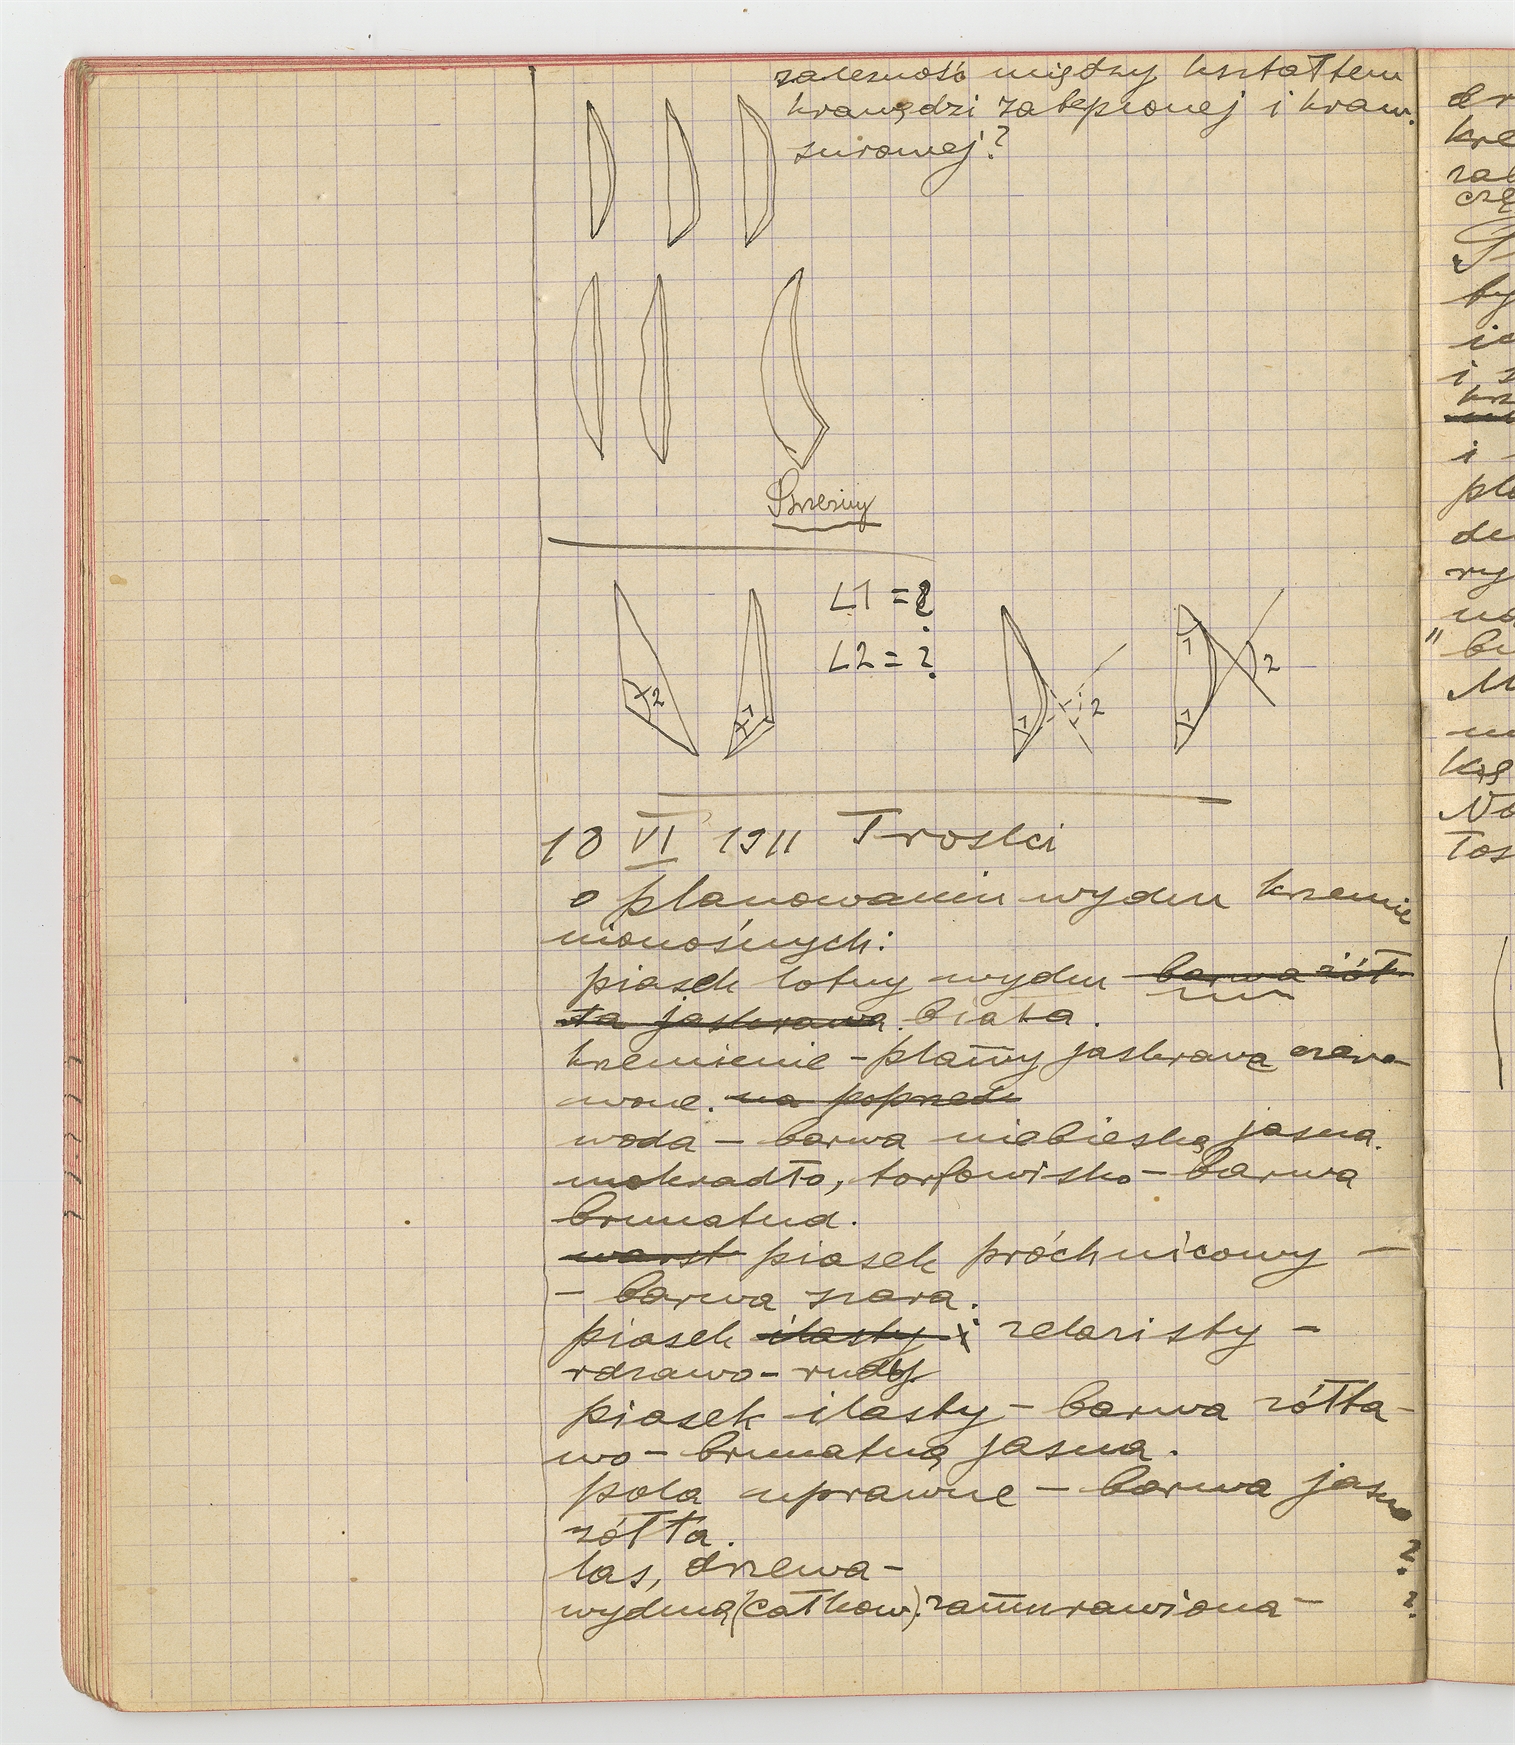 zależność między kształtem
krawędzi zatępionej i kraw.
surowej?
∠1 = ?
∠2 = ?
2
1
1
2
1
1
2
18 VI 1911 Troski
o planowaniu wydm krzemie
nionośnych:
piasek lotny wydm barwa żół-
ta jaskrawa. biała.
krzemienie – plamy jaskrawą czerwo-
wone. na poprzek
woda – barwa niebieską jasna.
mokradło, torfowisko – barwa
brunatna.
warst piasek próchnicowy –
– barwa szara.
piasek ilasty i żelazisty –
rdzawo – rudy
piasek ilasty – barwa żółta-
wo – brunatną jasna.
pola uprawne – barwa jasno
żółta.
las, drzewa – ?
wydmą (całkow.) zamurawiona – ?